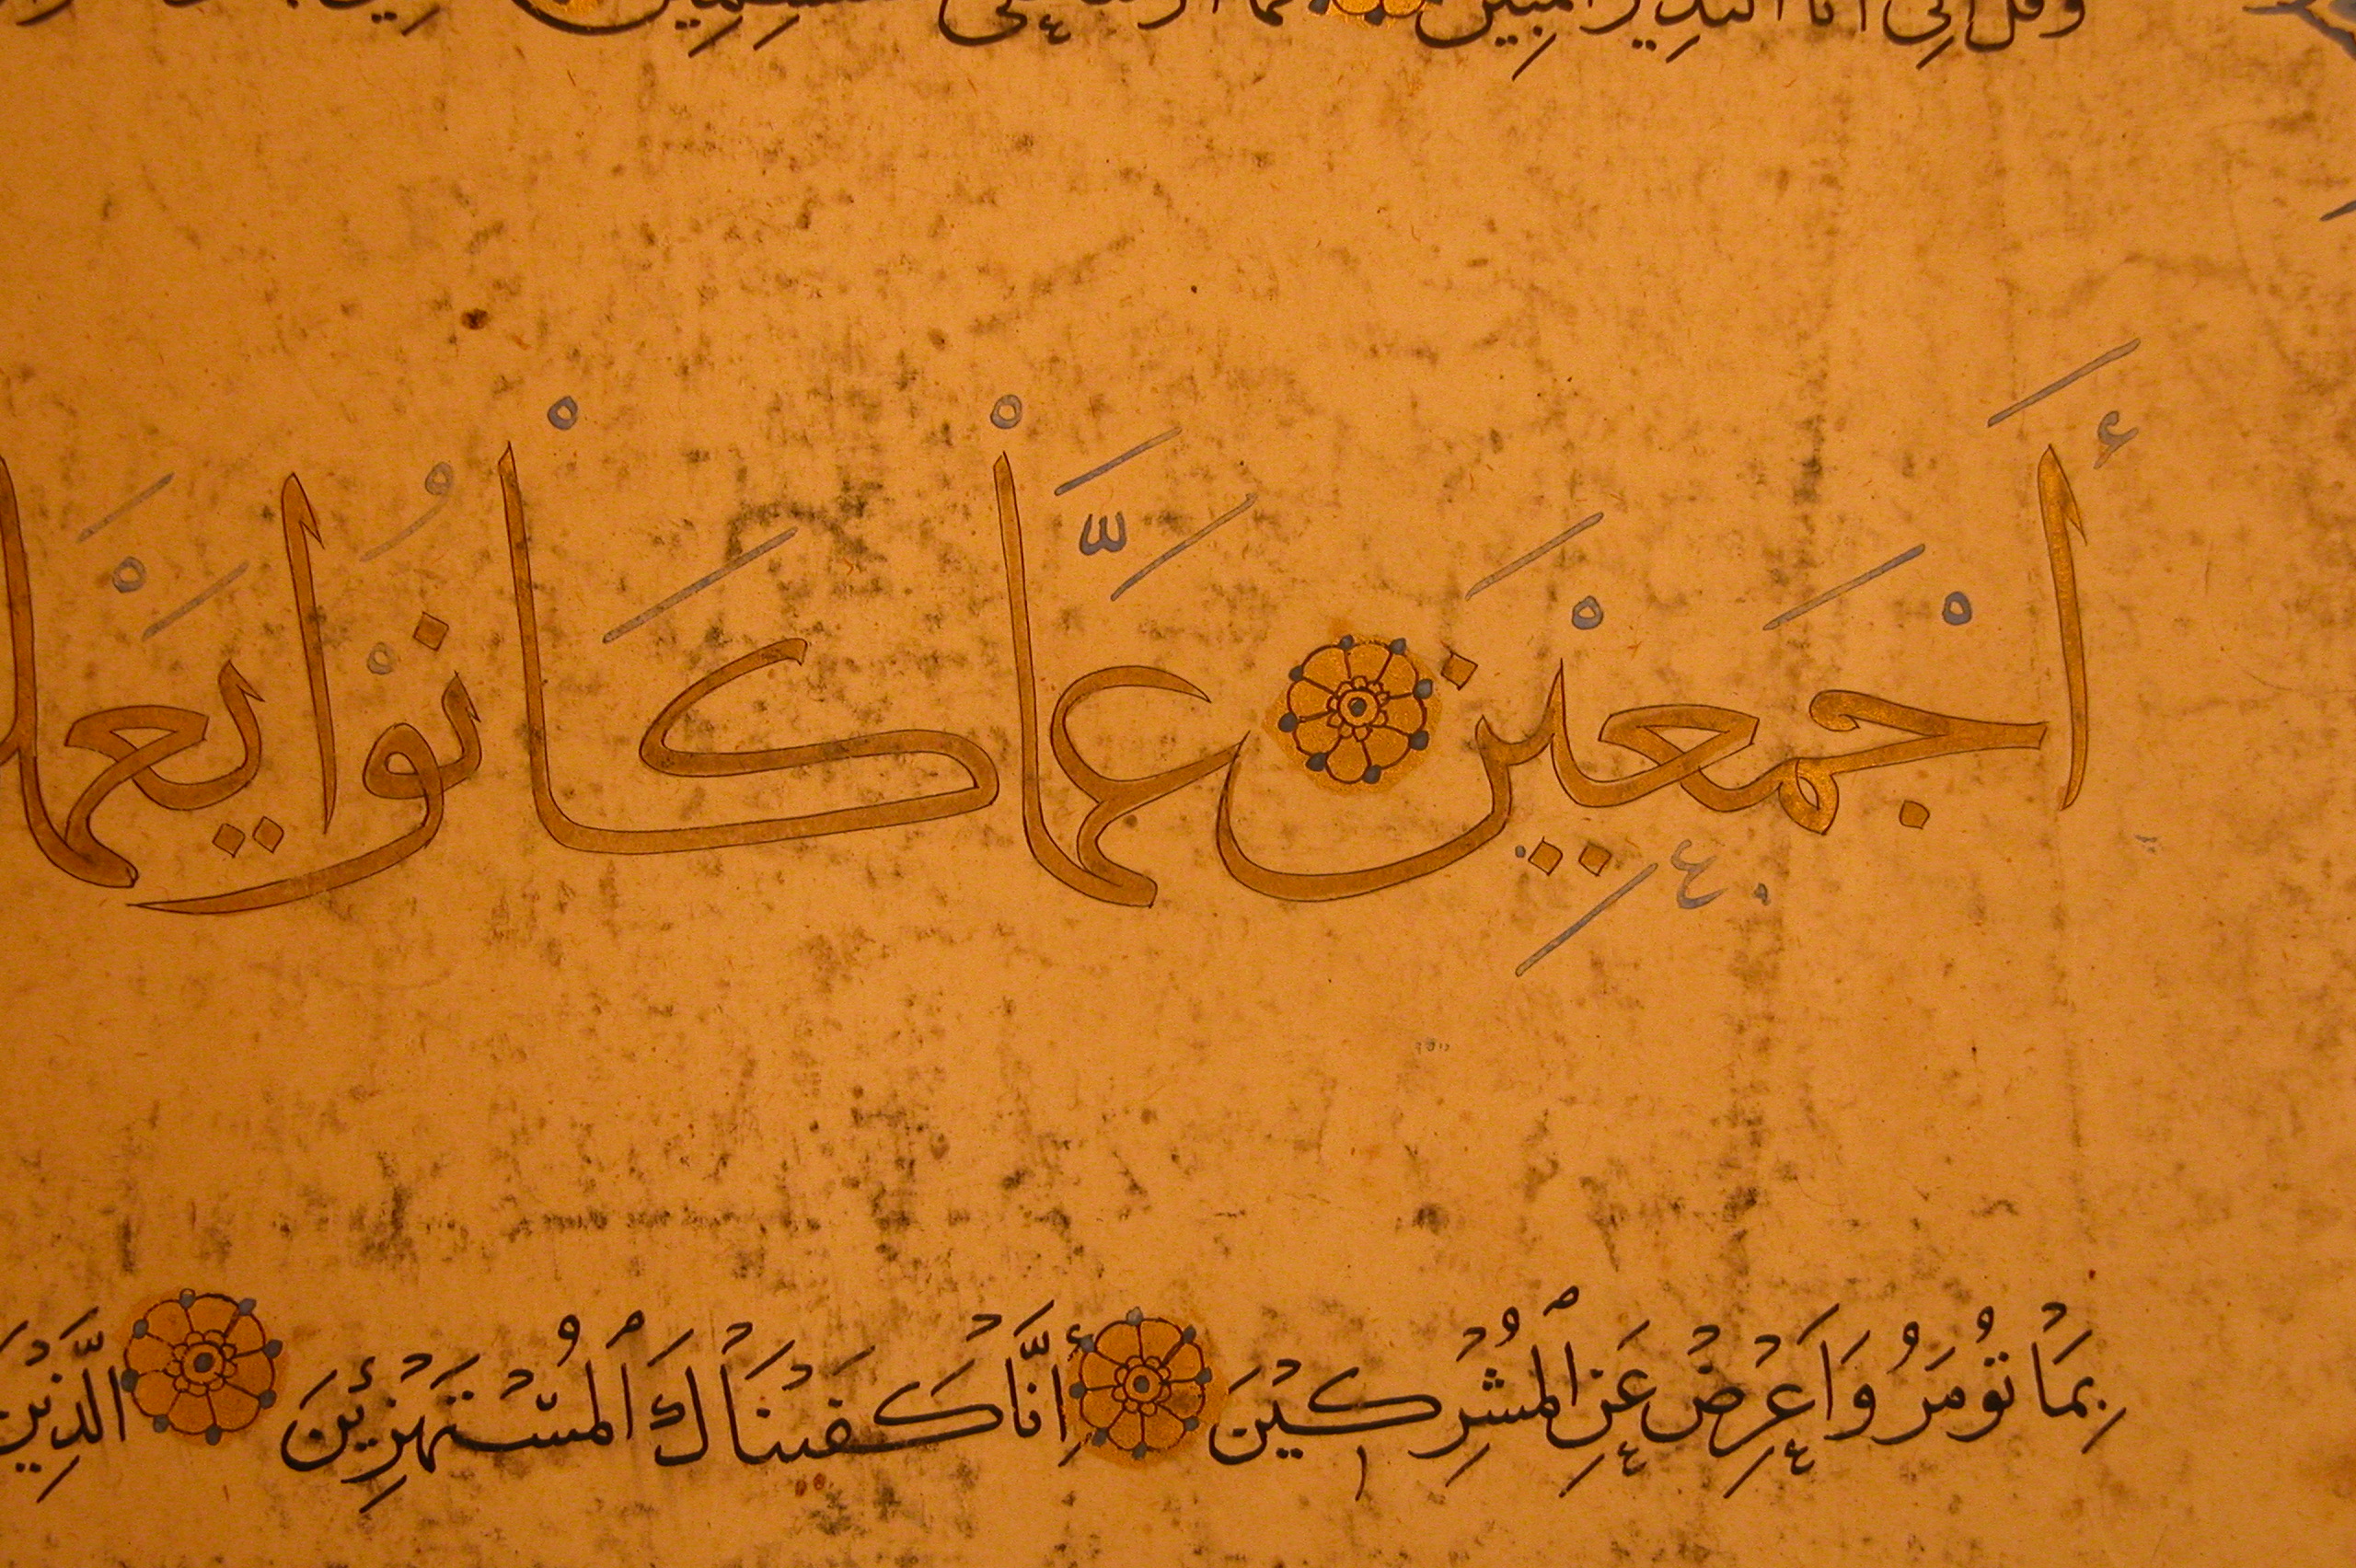 وقل اني انا النذير المبين
أَجْمَعِيْنَ عَمَّاْ كَاْنُوْا يَعْمَلُ
بِمَاْ تُؤْمَرُ وَاَعْرِضْ عَنِ الْمُشْرِكِيْنَ اِنَّاْ كَفَيْنَاْكَ الْمُسْتَهْزِئِيْنَ الَّذِيْنَ